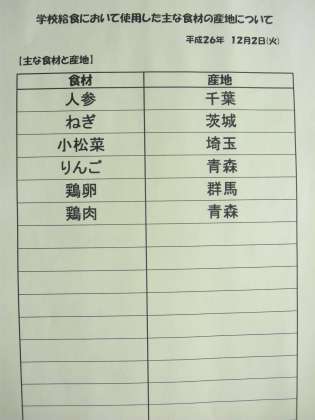 学校給食において使用した主な食材の産地について
平成26年 12月2日(火)
【主な食材と産地】
食材 産地
人参 千葉
ねぎ 茨城
小松菜 埼玉
りんご 青森
鶏卵 群馬
鶏肉 青森